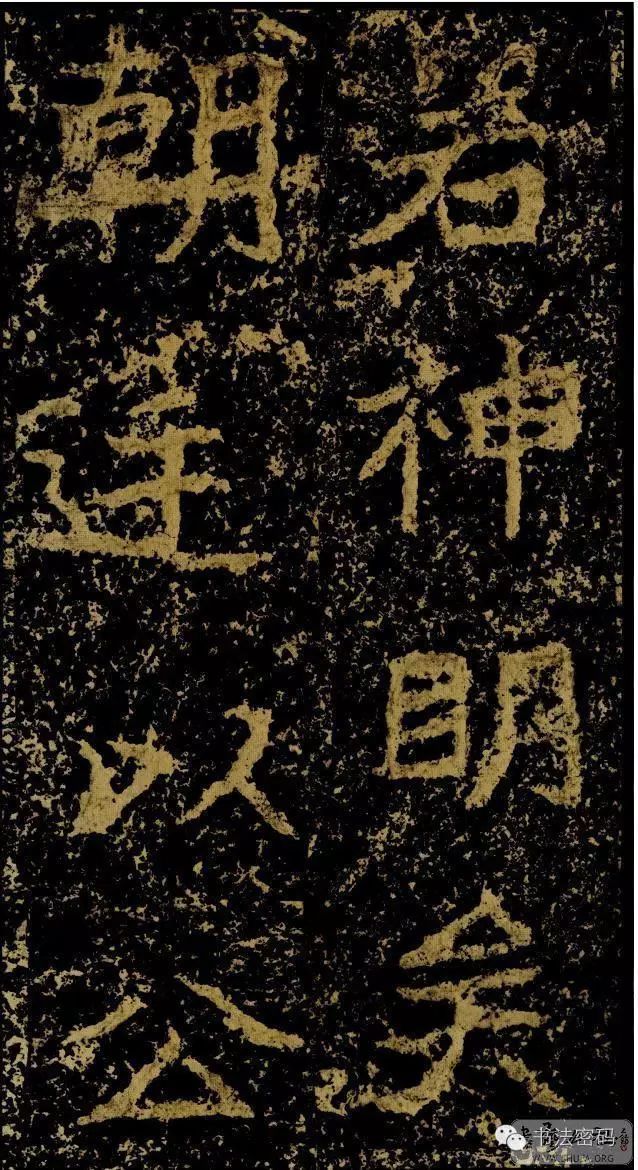 若神明矣
朝廷以公
书法密码